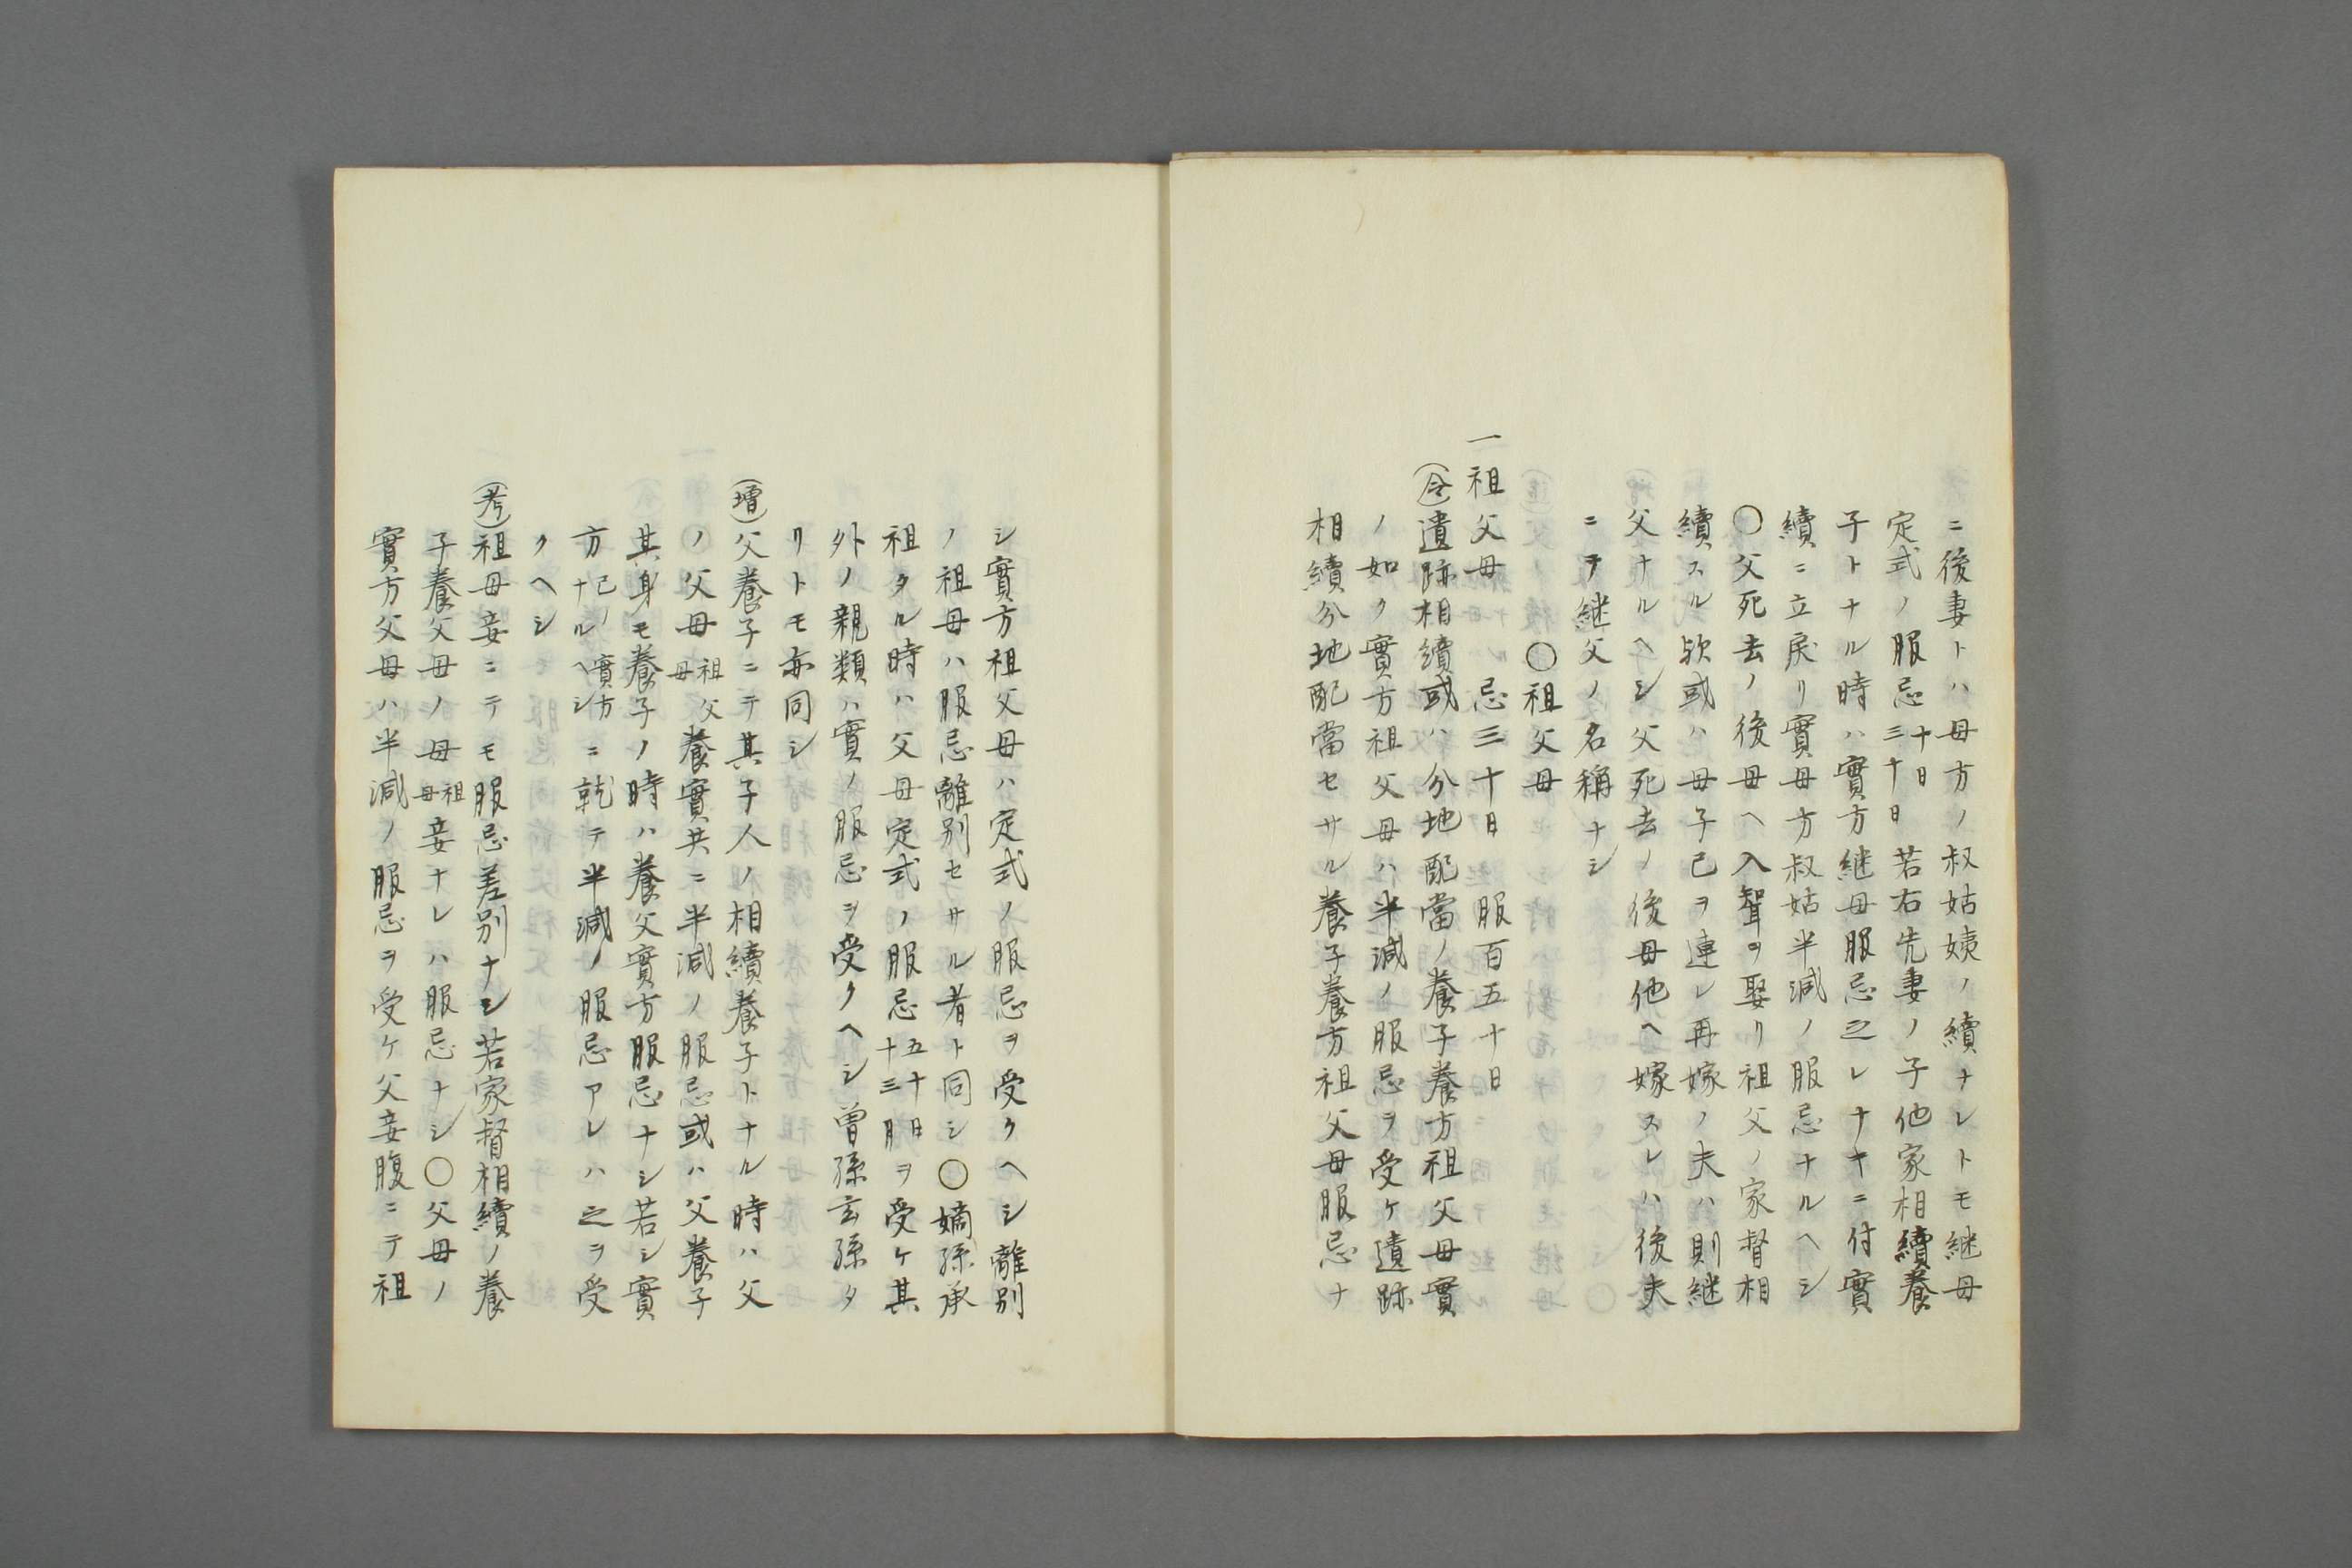 ニ後妻トハ母方ノ叔姑姨ノ續ナレトモ継母
定式ノ服忌十日三十日若右先妻ノ子他家相續養
子トナル時ハ實方継母服忌之レナキニ付實
續ニ立戻リ實母方叔姑半減ノ服忌ナルヘシ
〇父死去ノ後母ヘ入聟ヲ娶リ祖父ノ家督相
續スル欤或ハ母子已ヲ連レ再嫁ノ夫ハ則継
父ナルヘシ父死去ノ後母他ヘ嫁スレハ後夫
ニヲ継父ノ名稱ナシ
〇祖父母
一祖父母 忌三十日 服百五十日
(令)遺跡相續或ハ分地配當ノ養子養方祖父母實
ノ如ク實方祖父母ハ半減ノ服忌ヲ受ケ遺跡
相續分地配當セサル養子養方祖父母服忌ナ
シ實方祖父母ハ定式ノ服忌ヲ受クヘシ離別
ノ祖母ハ服忌離別セサル者ト同シ〇嫡孫承
祖タル時ハ父母定式ノ服忌五十日十三月ヲ受ケ其
外ノ親類ハ實ノ服忌ヲ受クヘシ曽孫玄孫タ
リトモ亦同シ
(増)父養子ニテ其子人ノ相續養子トナル時ハ父
ノ父母祖父母養實共ニ半減ノ服忌或ハ父養子
其身モ養子ノ時ハ養父實方服忌ナシ若シ實
方己ノ實方ナルヘシニ就テ半減ノ服忌アレハ之ヲ受
クヘシ
(考)祖母妾ニテモ服忌差別ナシ若家督相續ノ養
子養父母ノ母祖母妾ナレハ服忌ナシ〇父母ノ
實方父母ハ半減ノ服忌ヲ受ケ父妾腹ニテ祖